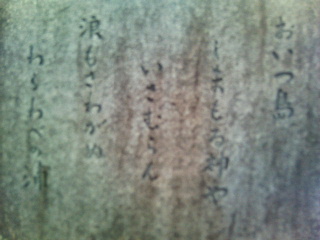 おいつ島
しまもる神や
いさむらん
浪もさわがぬ
わらわべの浦